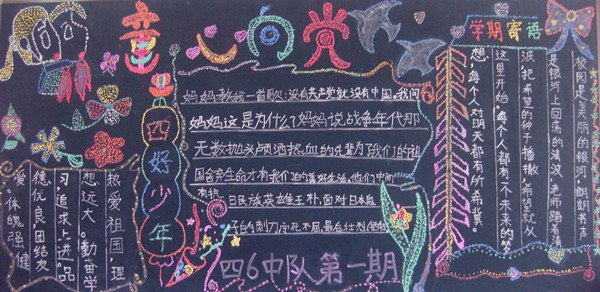 童心向党
学期寄语
校园是美丽的银河，朗朗书声
是银河上回荡的清波，老师踏着清
波，把希望的种子播撒。希望就从
这里开始，每个人都有一个未来的梦
想，每个人对明天都有所希冀。
妈妈教我一首歌：没有共产党就没有中国。我问
妈妈这是为什么？妈妈说战争年代那
无数抛头颅洒热血的先辈为了我们的祖
国舍弃生命才有我们的美好生活，他们中间
有抗日民族英雄王朴，面对日本鬼
的刺刀宁死不屈，最后壮烈牺牲
四好少年
热爱祖国，理
想远大。勤奋学
习，追求上进。品
德优良，团结友
爱。体魄强健
四6中队第一期